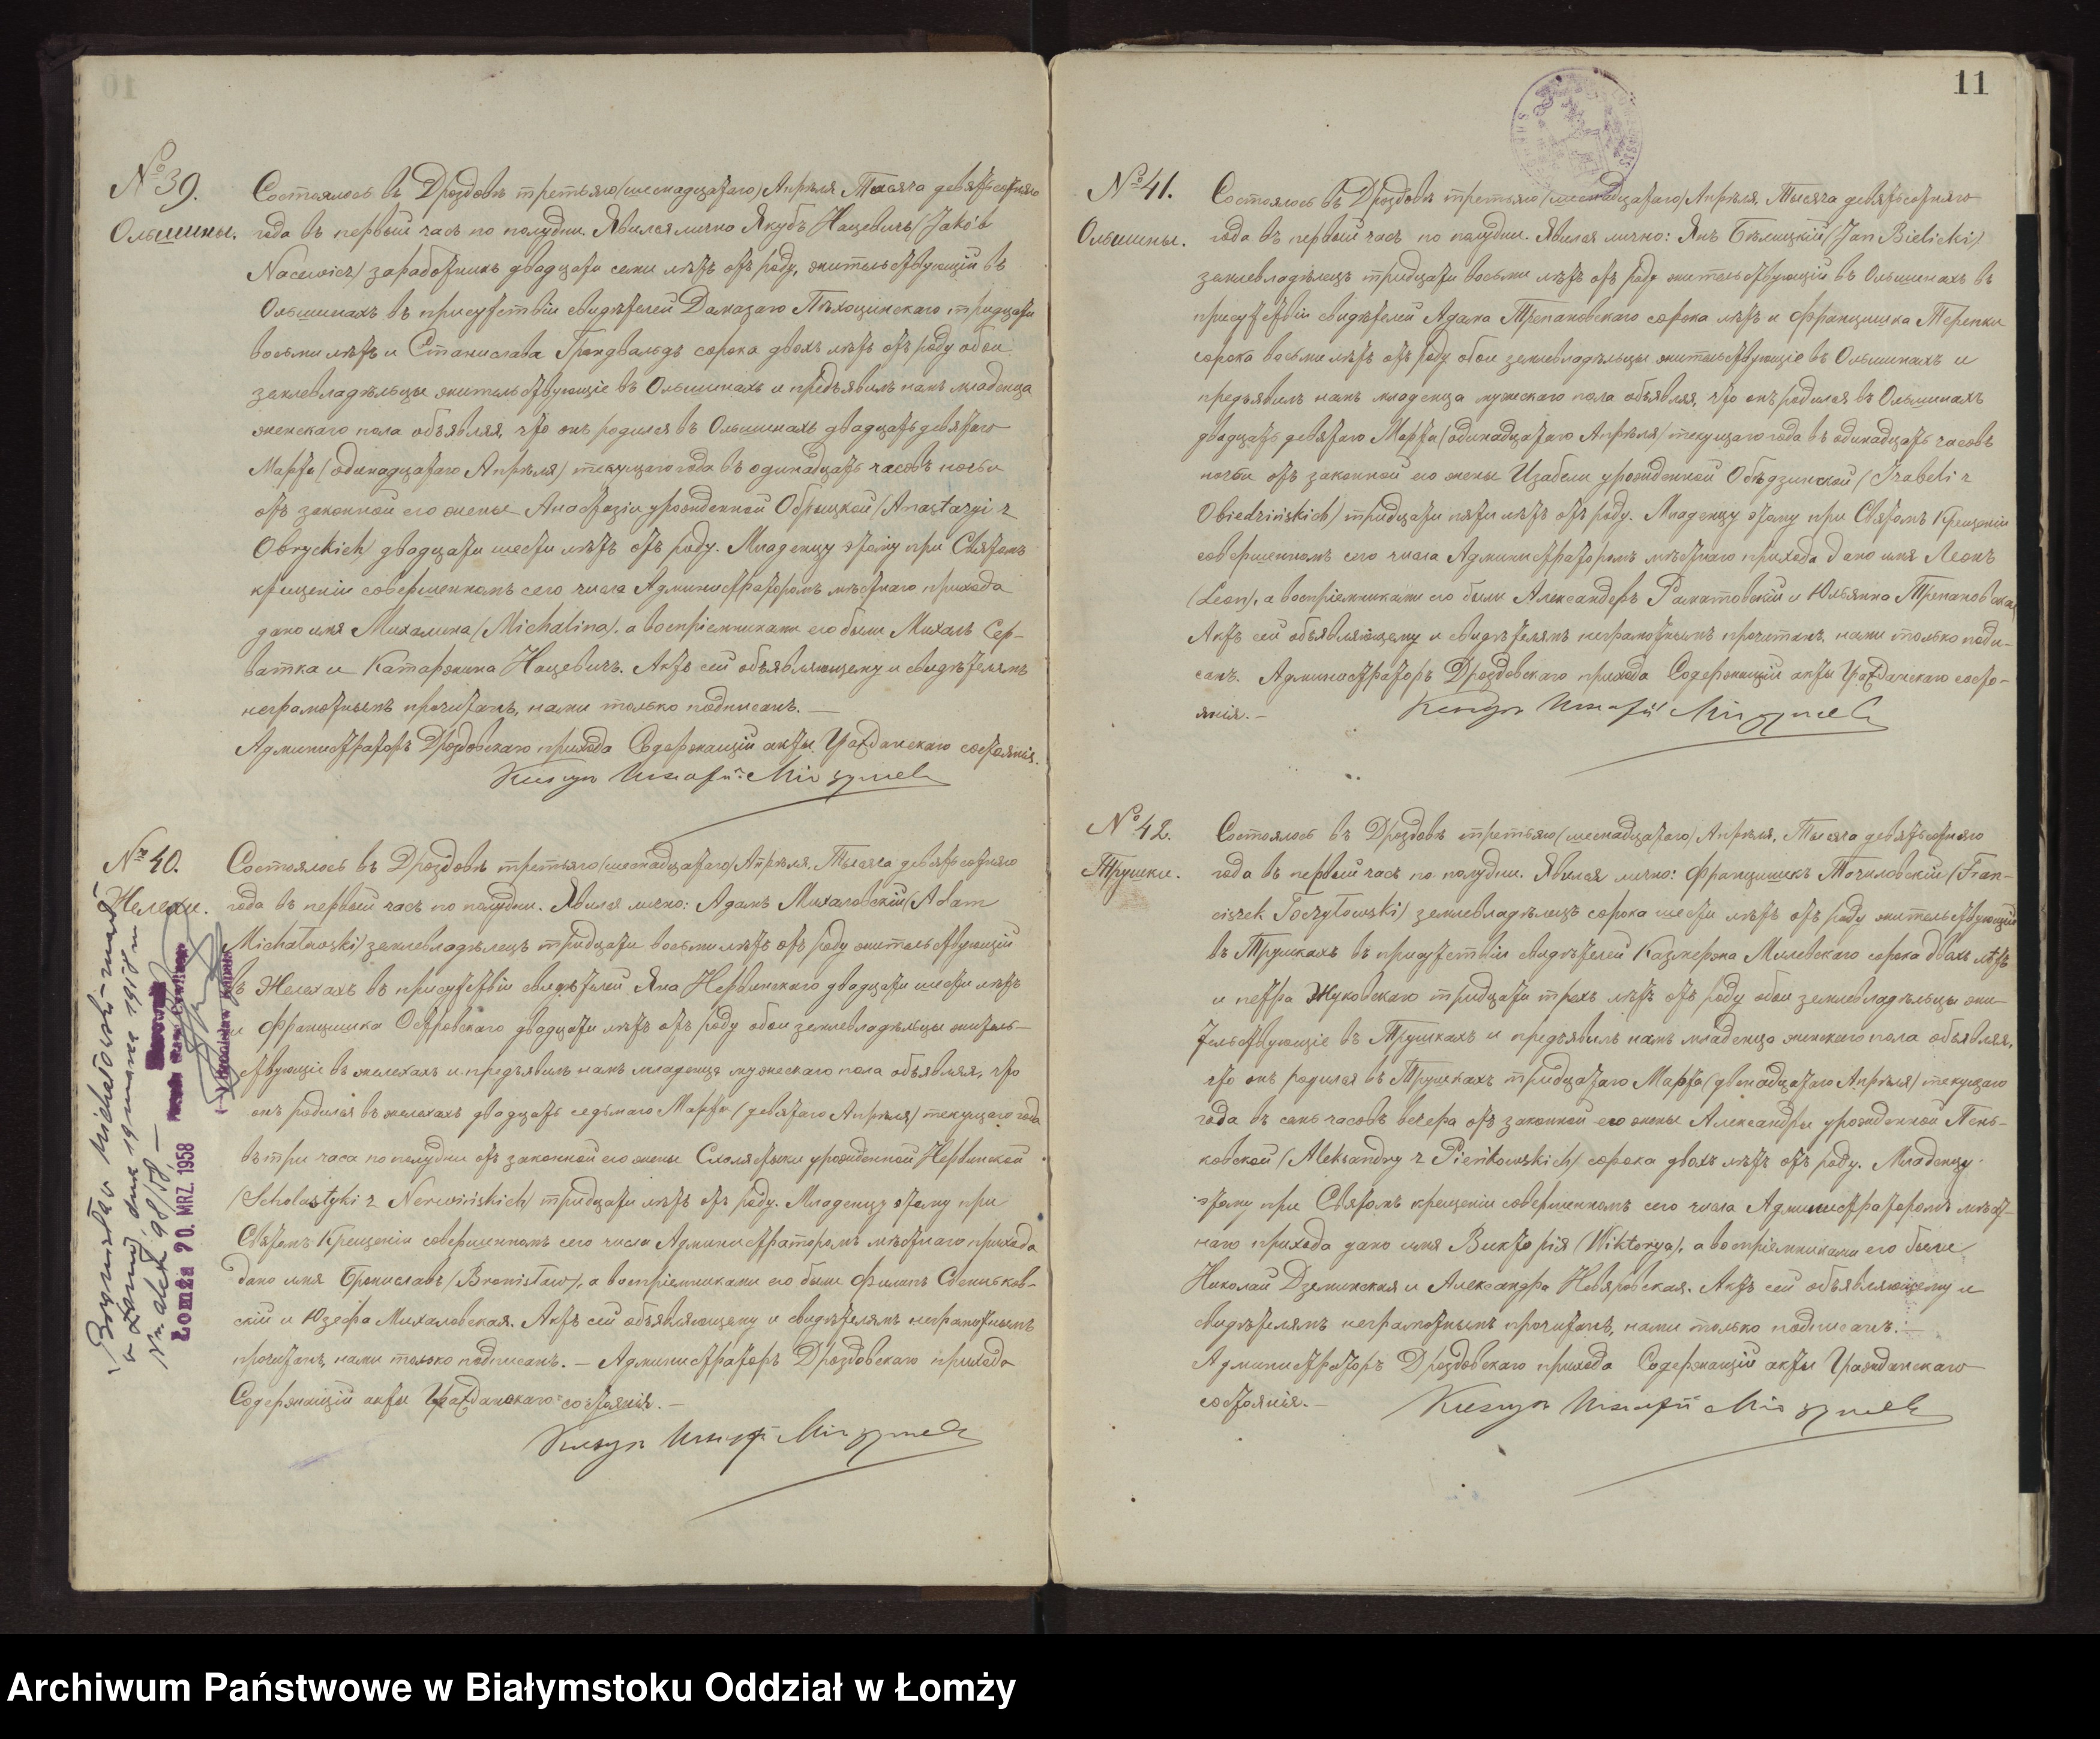 № 39.
Ольшины.
Состоялось въ Дроздовѣ третьяго (шеснадцатаго) Апрѣля Тысяча девятьсотняго
года въ первый часъ по полудни. Явился лично Якубъ Нацевичъ (Jakób
Nacewicz) заработникъ двадцати семи лѣтъ отъ роду, жительствующій въ
Ольшинахъ въ присутствіи свидѣтелей Дамазаго тридцати
восьми лѣтъ и Станислава Грондвальдъ сорока двохъ лѣтъ отъ роду обои
землевладѣльцы жительствующіе въ Ольшинахъ и предъявилъ намъ младенца
женскаго пола объявляя, что онъ родился въ Ольшинахъ двадцать девятаго
Марта (одинадцатаго Апрѣля) текущаго года въ одинадцать часовъ ночьи
отъ законной его жены Анастазіи урожденной Обрыцкой (Anastazyi z
Obryckich) двадцати шести лѣтъ отъ роду. Младенцу этому при Святомъ
крещеніи совершенномъ сего числа Администраторомъ мѣстнаго прихода
дано имя Михалина (Michalina), а воспріемниками его были Михалъ Сер-
ватка и Катаржина Нацевичъ. Актъ сей объявляющему и свидѣтелямъ
неграмотнымъ прочитанъ, нами только подписанъ. —
Администраторъ Дроздовскаго прихода Содержащій акты Гражданскаго состоянія.
№ 40.
Желехи.
Состоялось въ Дроздовѣ третьяго (шеснадцатаго) Апрѣля. Тысяча девятьсотняго
года въ первый часъ по полудни. Явился лично: Адамъ Михаловскій (Adam
Michałowski) землевладѣлецъ тридцати восьми лѣтъ отъ роду жительствующій
въ Желехахъ въ присутствіи свидѣтелей Яна Нервинскаго двадцати шести лѣтъ
и Францишка Островскаго двадцати лѣтъ отъ роду обои землевладѣльцы житель-
ствующіе въ желехахъ и предъявилъ намъ младенца мужескаго пола объявляя, что
онъ родился въ желехахъ двадцать седьмаго Марта (девятаго Апрѣля) текущаго года
въ три часа по полудни отъ законной его жены Схолястыки урожденной Нервинской
(Scholastyki z Nerwińskich) тридцати лѣтъ отъ роду. Младенцу этому при
Святомъ Крещеніи совершенномъ сего числа Администраторомъ мѣстнаго прихода
дано имя Брониславъ (Bronisław), а воспріемниками его были Филипъ
скій и Юзефа Михаловская. Актъ сей объявляющему и свидѣтелямъ неграмотнымъ
прочитанъ, нами только подписанъ. — Администраторъ Дроздовскаго прихода
Содержащій акты Гражданскаго состоянія. —
Bronisław Michałowski zmarł
w Łomży dnia 19 1958 r.
Nr. aktu 98/58 —
Łomża 20. MRZ. 1958
11
№ 41.
Ольшины.
Состоялось въ Дроздовѣ третьяго (шеснадцатаго) Апрѣля, Тысяча девятьсотняго
года въ первый часъ по полудни. Явился лично: Янъ Бѣлицкій (Jan Bielicki)
землевладѣлецъ тридцати восьми лѣтъ отъ роду жительствующій въ Ольшинахъ въ
присутствіи свидѣтелей Адама Трепановскаго сорока лѣтъ и Францишка Терепки
сорока восьми лѣтъ отъ роду обои землевладѣльцы жительствующіе въ Ольшинахъ и
предъявилъ намъ младенца мужескаго пола объявляя, что онъ родился въ Ольшинахъ
двадцать девятаго Марта (одинадцатаго Апрѣля) текущаго года въ одинадцать часовъ
ночьи отъ законной его жены Изабели урожденной Обѣдзинской (Izabeli z
Obiedzińskich) тридцати пяти лѣтъ отъ роду. Младенцу этому при Святомъ Крещеніи
совершенномъ сего числа Администраторомъ мѣстнаго прихода дано имя Леонъ
(Leon), а воспріемниками его были Александеръ Раматовскій и Юльянна Трепановская
Актъ сей объявляющему и свидѣтелямъ неграмотнымъ прочитанъ, нами только подпи-
санъ. Администраторъ Дроздовскаго прихода Содержащій акты Гражданскаго состо-
янія. —
№ 42.
Трушки.
Состоялось въ Дроздовѣ третьяго (шеснадцатаго) Апрѣля, Тысяча девятьсотняго
года въ первый часъ по полудни. Явился лично: Францишекъ Точиловскій (Fran-
ciszek Toczyłowski) землевладѣлецъ сорока шести лѣтъ отъ роду жительствующій
въ Трушкахъ въ присутствіи свидѣтелей Казмержа Милевскаго сорока двохъ лѣтъ
и петра Жуковскаго тридцати трехъ лѣтъ отъ роду обои землевладѣльцы жи-
тельствующіе въ Трушкахъ и предъявилъ намъ младенца женскаго пола объявляя,
что онъ родился въ Трушкахъ тридцатаго Марта (двенадцатаго Апрѣля) текущаго
года въ семь часовъ вечера отъ законной его жены Александры урожденной Пень-
ковской (Aleksandry z Pieńkowskich) сорока двохъ лѣтъ отъ роду. Младенцу
этому при Святомъ крещеніи совершенномъ сего числа Администраторомъ мѣст-
наго прихода дано имя Викторія (Wiktorya), а воспріемниками его были
Николай и Александра Невяровская. Актъ сей объявляющему и
свидѣтелямъ неграмотнымъ прочитанъ, нами только подписанъ. —
Администраторъ Дроздовскаго прихода Содержащій акты Гражданскаго
состоянія. —
Archiwum Państwowe w Białymstoku Oddział w Łomży